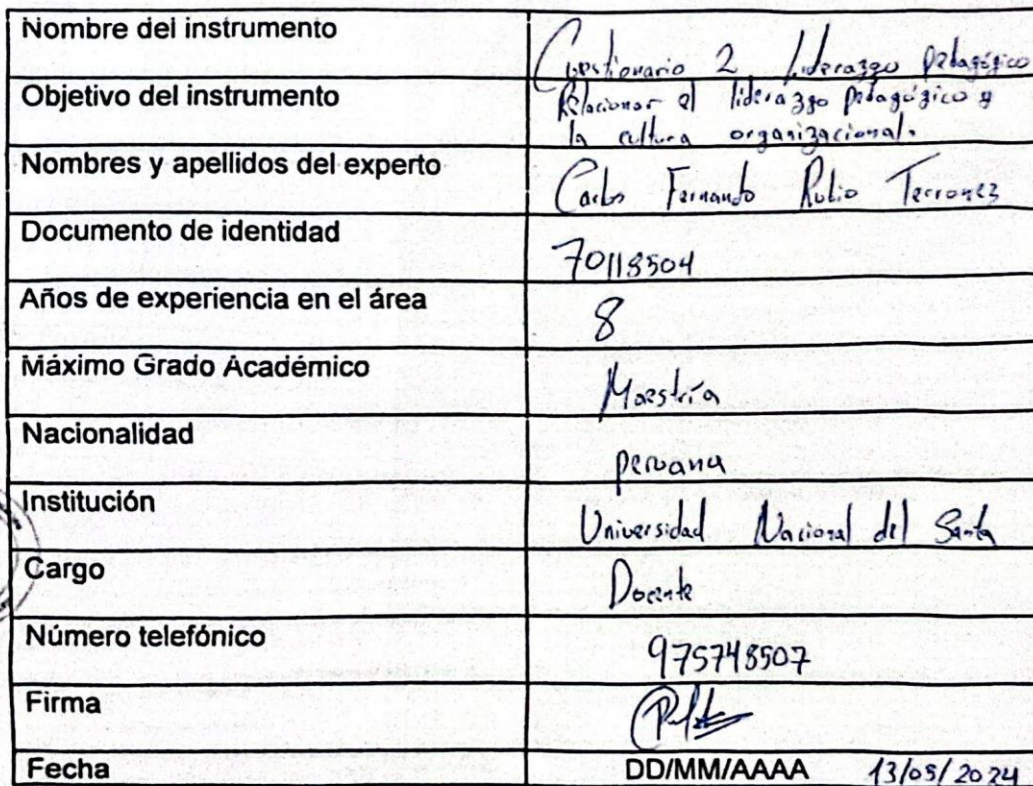 Nombre del instrumento
Cuestionario 2 Liderazgo pedagógico
Objetivo del instrumento
Relacionar el liderazgo pedagógico y
la cultura organizacional.
Nombres y apellidos del experto
Carlos Fernando Rubio Terrones
Documento de identidad
70118504
Años de experiencia en el área
8
Máximo Grado Académico
Maestría
Nacionalidad
peruana
Institución
Universidad Nacional del Santa
Cargo
Docente
Número telefónico
975748507
Firma
Fecha
DD/MM/AAAA 13/05/2024